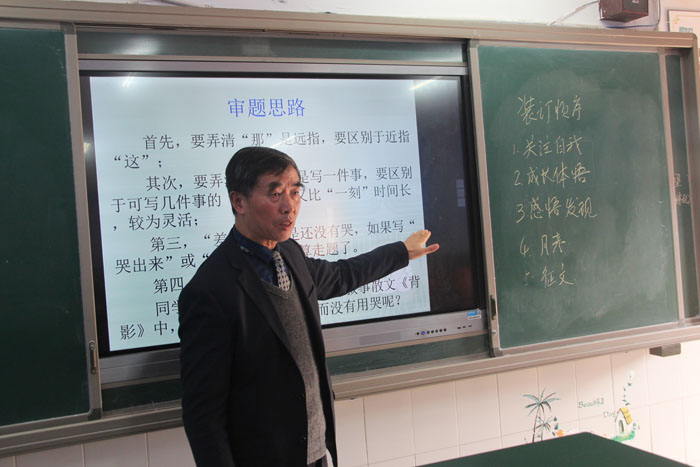 审题思路
首先，要弄清“那”是远指，要区别于近指
“这”；
其次，要弄 是写一件事，要区别
于可写几件事的 比“一刻”时间长
，较为灵活；
第三，“差 是还没有哭，如果写“
哭出来”或“ 走题了。
第四 叙事散文《背
同学
影》中， 而没有用哭呢？
装订顺序
1.关注自我
2.成长体悟
3.感悟发现
4.月考
5.征文
Beautiful
Day